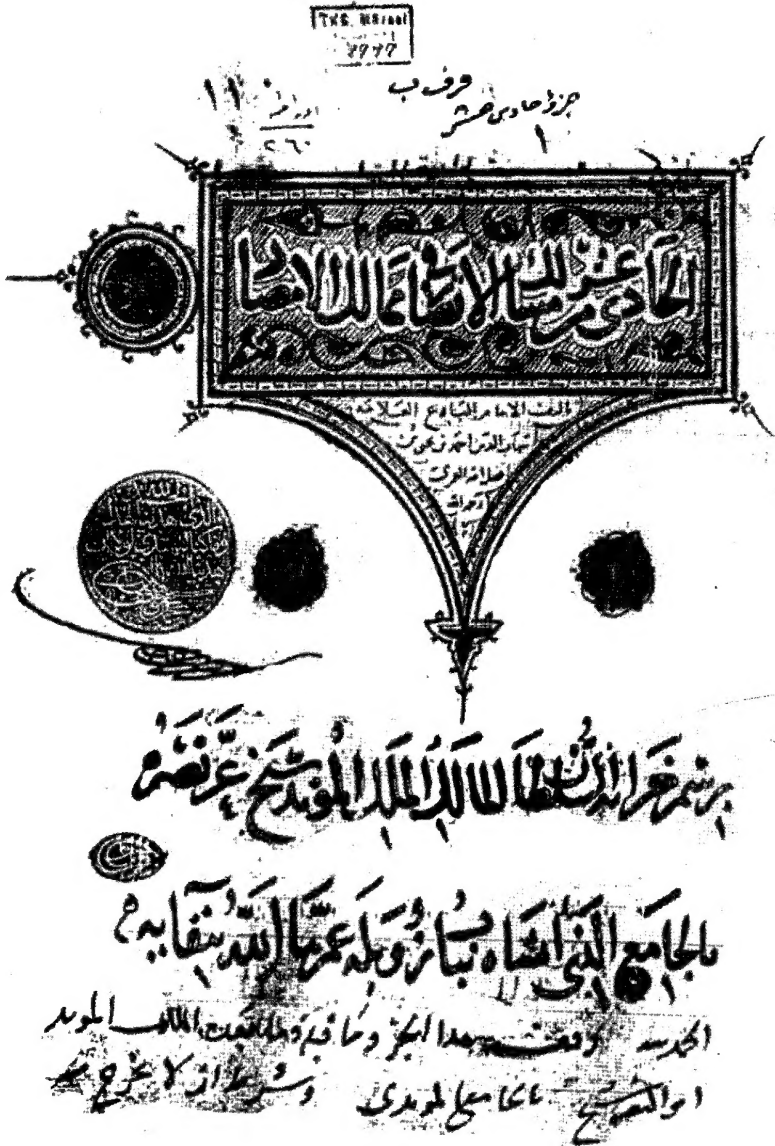 جزء حادى عشر
١
١١
اوراق
٢٦٠
الحادى عشر من مسالك الابصار في ممالك الامصار
تاليف الامام البارع العلامه
شهاب الدين احمد بن يحيى بن
فضل الله العمرى
برسم خزانة السلطان المالك الملك المؤيد شيخ عز نصره
بالجامع الذى انشاه بباب زويله عمرها الله ببقايه
الحمد لله وقف هذا الجزء وما قبله وما بعده الملك المويد
ابو النصر شيخ بالجامع المويدى وشرط ان لا يخرج منه